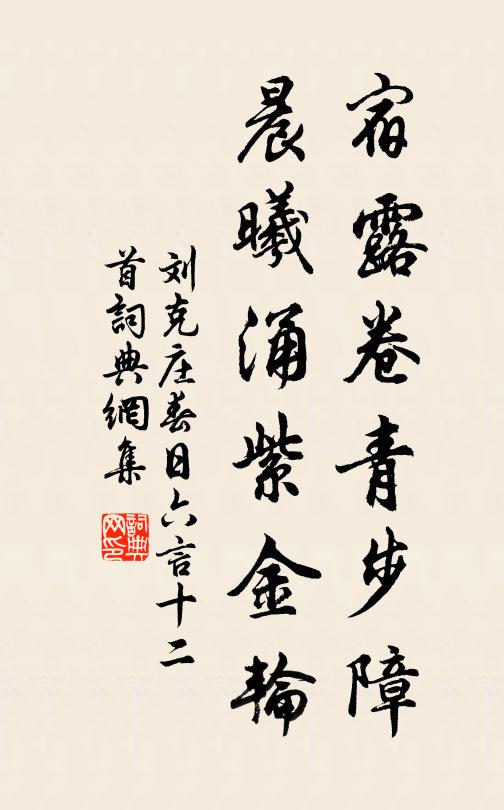 宿露卷青步障
晨曦涌紫金輪
刘克庄春日六言十二
首詞典網集
詞典网印